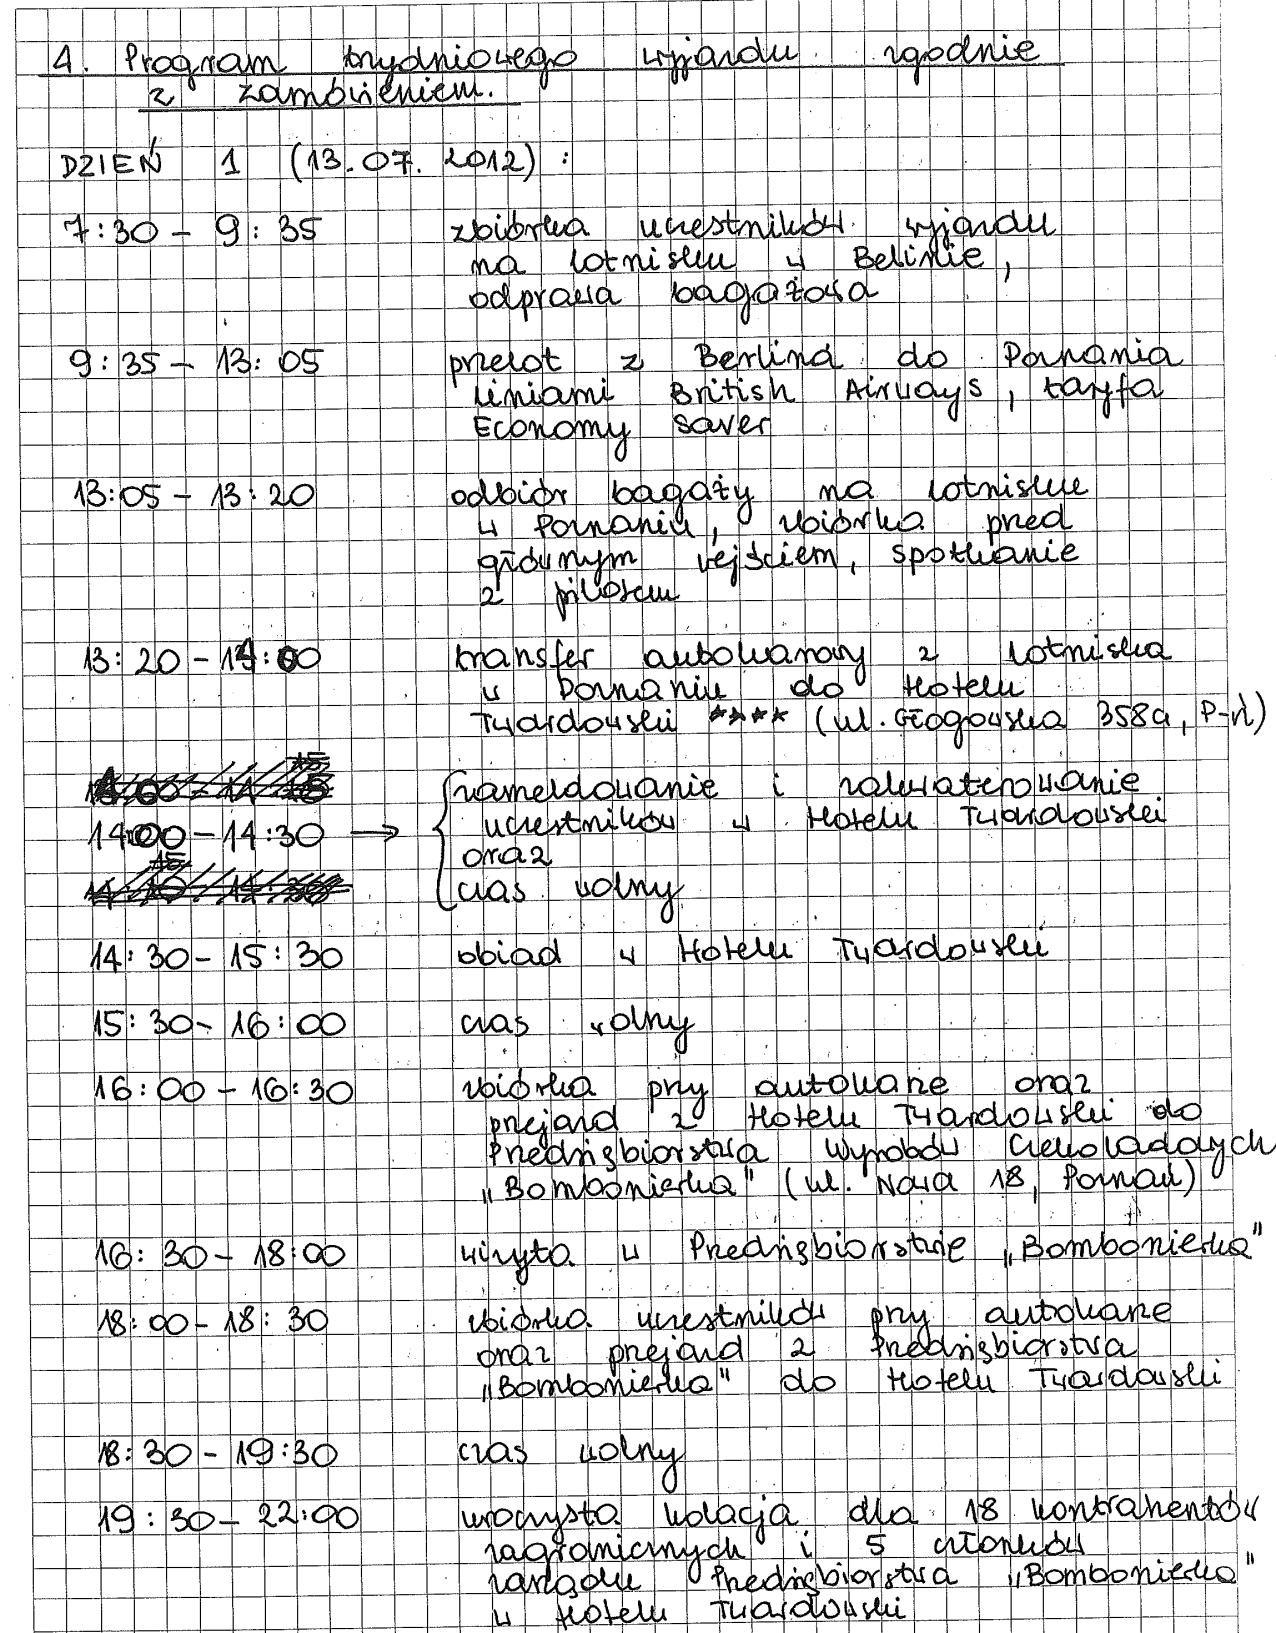 4. Program trzydniowego wyjazdu zgodnie
z zamówieniem.
DZIEŃ 1 (13.07.2012):
7:30 - 9:35 zbiórka uczestników wyjazdu
na lotnisku w Belinie,
odprawa bagażowa
9:35 - 13:05 przelot z Berlina do Poznania
liniami British Airways, taryfa
Economy saver
13:05 - 13:20 odbiór bagaży na lotnisku
w Poznaniu, zbiórka przed
głównym wejściem, spotkanie
z pilotem
13:20 - 14:00 transfer autokarowy z lotniska
w Poznaniu do Hotelu
Twardowski **** (ul. Głogowska 358a, P-ń)
zameldowanie i zakwaterowanie
14:00 - 14:30 → uczestników w Hotelu Twardowski
oraz
czas wolny
14:30 - 15:30 obiad w Hotelu Twardowski
15:30 - 16:00 czas wolny
16:00 - 16:30 zbiórka przy autokarze oraz
przejazd z Hotelu Twardowski do
Przedsiębiorstwa Wyrobów Czekoladowych
„Bombonierka" (ul. Nowa 18, Poznań)
16:30 - 18:00 wizyta w Przedsiębiorstwie „Bombonierka"
18:00 - 18:30 zbiórka uczestników przy autokarze
oraz przejazd z Przedsiębiorstwa
„Bombonierka" do Hotelu Twardowski
18:30 - 19:30 czas wolny
19:30 - 22:00 uroczysta kolacja dla 18 kontrahentów
zagranicznych i 5 członków
zarządu Przedsiębiorstwa „Bombonierka"
w Hotelu Twardowski